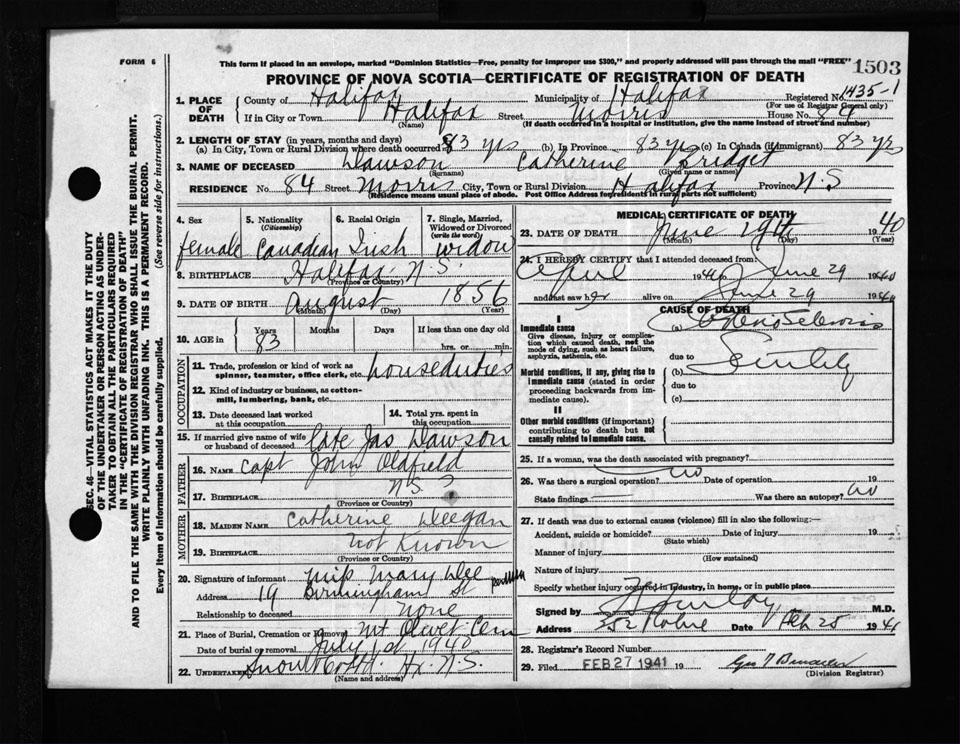 FORM 6
This form if placed in an envelope, marked "Dominion Statistics—Free, penalty for improper use $300," and properly addressed will pass through the mail "FREE"
1503
PROVINCE OF NOVA SCOTIA—CERTIFICATE OF REGISTRATION OF DEATH
SEC. 46—VITAL STATISTICS ACT MAKES IT THE DUTY
OF THE UNDERTAKER OR PERSON ACTING AS UNDER-
TAKER TO OBTAIN ALL THE PARTICULARS REQUIRED
IN THE "CERTIFICATE OF REGISTRATION OF DEATH"
AND TO FILE THE SAME WITH THE DIVISION REGISTRAR WHO SHALL ISSUE THE BURIAL PERMIT.
WRITE PLAINLY WITH UNFADING INK. THIS IS A PERMANENT RECORD.
Every item of Information should be carefully supplied. (See reverse side for instructions.)
1. PLACE OF DEATH County of Halifax Municipality of Halifax Registered No. 1435-1
(For use of Registrar General only)
If in City or Town Halifax Street Morris House No. 84
(Name) (If death occurred in a hospital or institution, give the name instead of street and number)
2. LENGTH OF STAY (in years, months and days)
(a) In City, Town or Rural Division where death occurred 83 yrs (b) In Province 83 yrs (c) In Canada (if immigrant) 83 yrs
3. NAME OF DECEASED Dawson Catherine Bridget
(Surname) (Given name or names)
RESIDENCE No. 84 Street Morris City, Town or Rural Division Halifax Province N.S
(Residence means usual place of abode. Post Office Address for residents in rural parts not sufficient)
4. Sex 5. Nationality (Citizenship) 6. Racial Origin 7. Single, Married, Widowed or Divorced (write the word)
female Canadian Irish widow
8. BIRTHPLACE Halifax N.S.
(Province or Country)
9. DATE OF BIRTH August 1856
(Month) (Day) (Year)
10. AGE in Years Months Days If less than one day old
83 hrs. or min.
OCCUPATION
11. Trade, profession or kind of work as spinner, teamster, office clerk, etc. houseduties
12. Kind of industry or business, as cotton-mill, lumbering, bank, etc.
13. Date deceased last worked at this occupation 14. Total yrs. spent in this occupation
15. If married give name of wife or husband of deceased late Jas Dawson
FATHER
16. NAME Capt John Oldfield
17. BIRTHPLACE N.S.?
(Province or Country)
MOTHER
18. MAIDEN NAME Catherine Deegan
19. BIRTHPLACE not Known
(Province or Country)
20. Signature of informant Miss Mary Dee
Address 19 Birmingham St
Relationship to deceased None
21. Place of Burial, Cremation or Removal Mt Olivet Cem
Date of burial or removal July 1st 1940
22. UNDERTAKER Hx. N.S.
(Name and address)
MEDICAL CERTIFICATE OF DEATH
23. DATE OF DEATH June 29th 1940
(Month) (Day) (Year)
24. I HEREBY CERTIFY that I attended deceased from:
April 1940 to June 29 1940
and last saw her alive on June 29 1940
CAUSE OF DEATH
I
Immediate cause (a)
Give disease, injury or complication which caused death, not the mode of dying, such as heart failure, asphyxia, asthenia, etc.
due to
Morbid conditions, if any, giving rise to immediate cause (stated in order proceeding backwards from immediate cause). (b) Senility
due to
(c)
II
Other morbid conditions (if important) contributing to death but not causally related to immediate cause.
25. If a woman, was the death associated with pregnancy?
26. Was there a surgical operation? no Date of operation 19
State findings Was there an autopsy? no
27. If death was due to external causes (violence) fill in also the following:—
Accident, suicide or homicide? Date of injury 19
(State which)
Manner of injury
(How sustained)
Nature of injury
Specify whether injury occurred in industry, in home, or in public place
Signed by M.D.
Address 252 Robie Date Feb 25 1941
28. Registrar's Record Number
29. Filed FEB 27 1941 19
(Division Registrar)